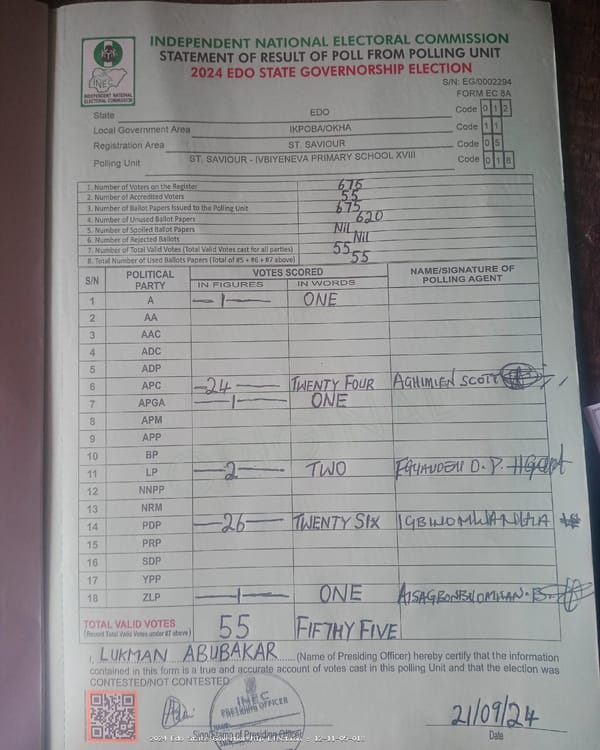 INDEPENDENT NATIONAL ELECTORAL COMMISSION
STATEMENT OF RESULT OF POLL FROM POLLING UNIT
2024 EDO STATE GOVERNORSHIP ELECTION
INEC
INDEPENDENT NATIONAL ELECTORAL COMMISSION
S/N: EG/0002294
FORM EC 8A
State EDO Code 0 1 2
Local Government Area IKPOBA/OKHA Code 1 1
Registration Area ST. SAVIOUR Code 0 5
Polling Unit ST. SAVIOUR - IVBIYENEVA PRIMARY SCHOOL XVIII Code 0 1 8
1. Number of Voters on the Register 675
2. Number of Accredited Voters 55
3. Number of Ballot Papers Issued to the Polling Unit 675
4. Number of Unused Ballot Papers 620
5. Number of Spoiled Ballot Papers Nil
6. Number of Rejected Ballots Nil
7. Number of Total Valid Votes (Total Valid Votes cast for all parties) 55
8. Total Number of Used Ballots Papers (Total of #5 + #6 + #7 above) 55
S/N POLITICAL PARTY VOTES SCORED NAME/SIGNATURE OF POLLING AGENT
IN FIGURES IN WORDS
1 A 1 ONE
2 AA
3 AAC
4 ADC
5 ADP
6 APC 24 TWENTY FOUR AGHIMIEN SCOTT
7 APGA 1 ONE
8 APM
9 APP
10 BP
11 LP 2 TWO
12 NNPP
13 NRM
14 PDP 26 TWENTY SIX
15 PRP
16 SDP
17 YPP
18 ZLP 1 ONE
TOTAL VALID VOTES 55 FIFTHY FIVE
(Record Total Valid Votes under #7 above)
I, LUKMAN ABUBAKAR (Name of Presiding Officer) hereby certify that the information
contained in this form is a true and accurate account of votes cast in this polling Unit and that the election was
CONTESTED/NOT CONTESTED
INEC
PRESIDING OFFICER
21/09/24
Sign/Stamp of Presiding Officer Date